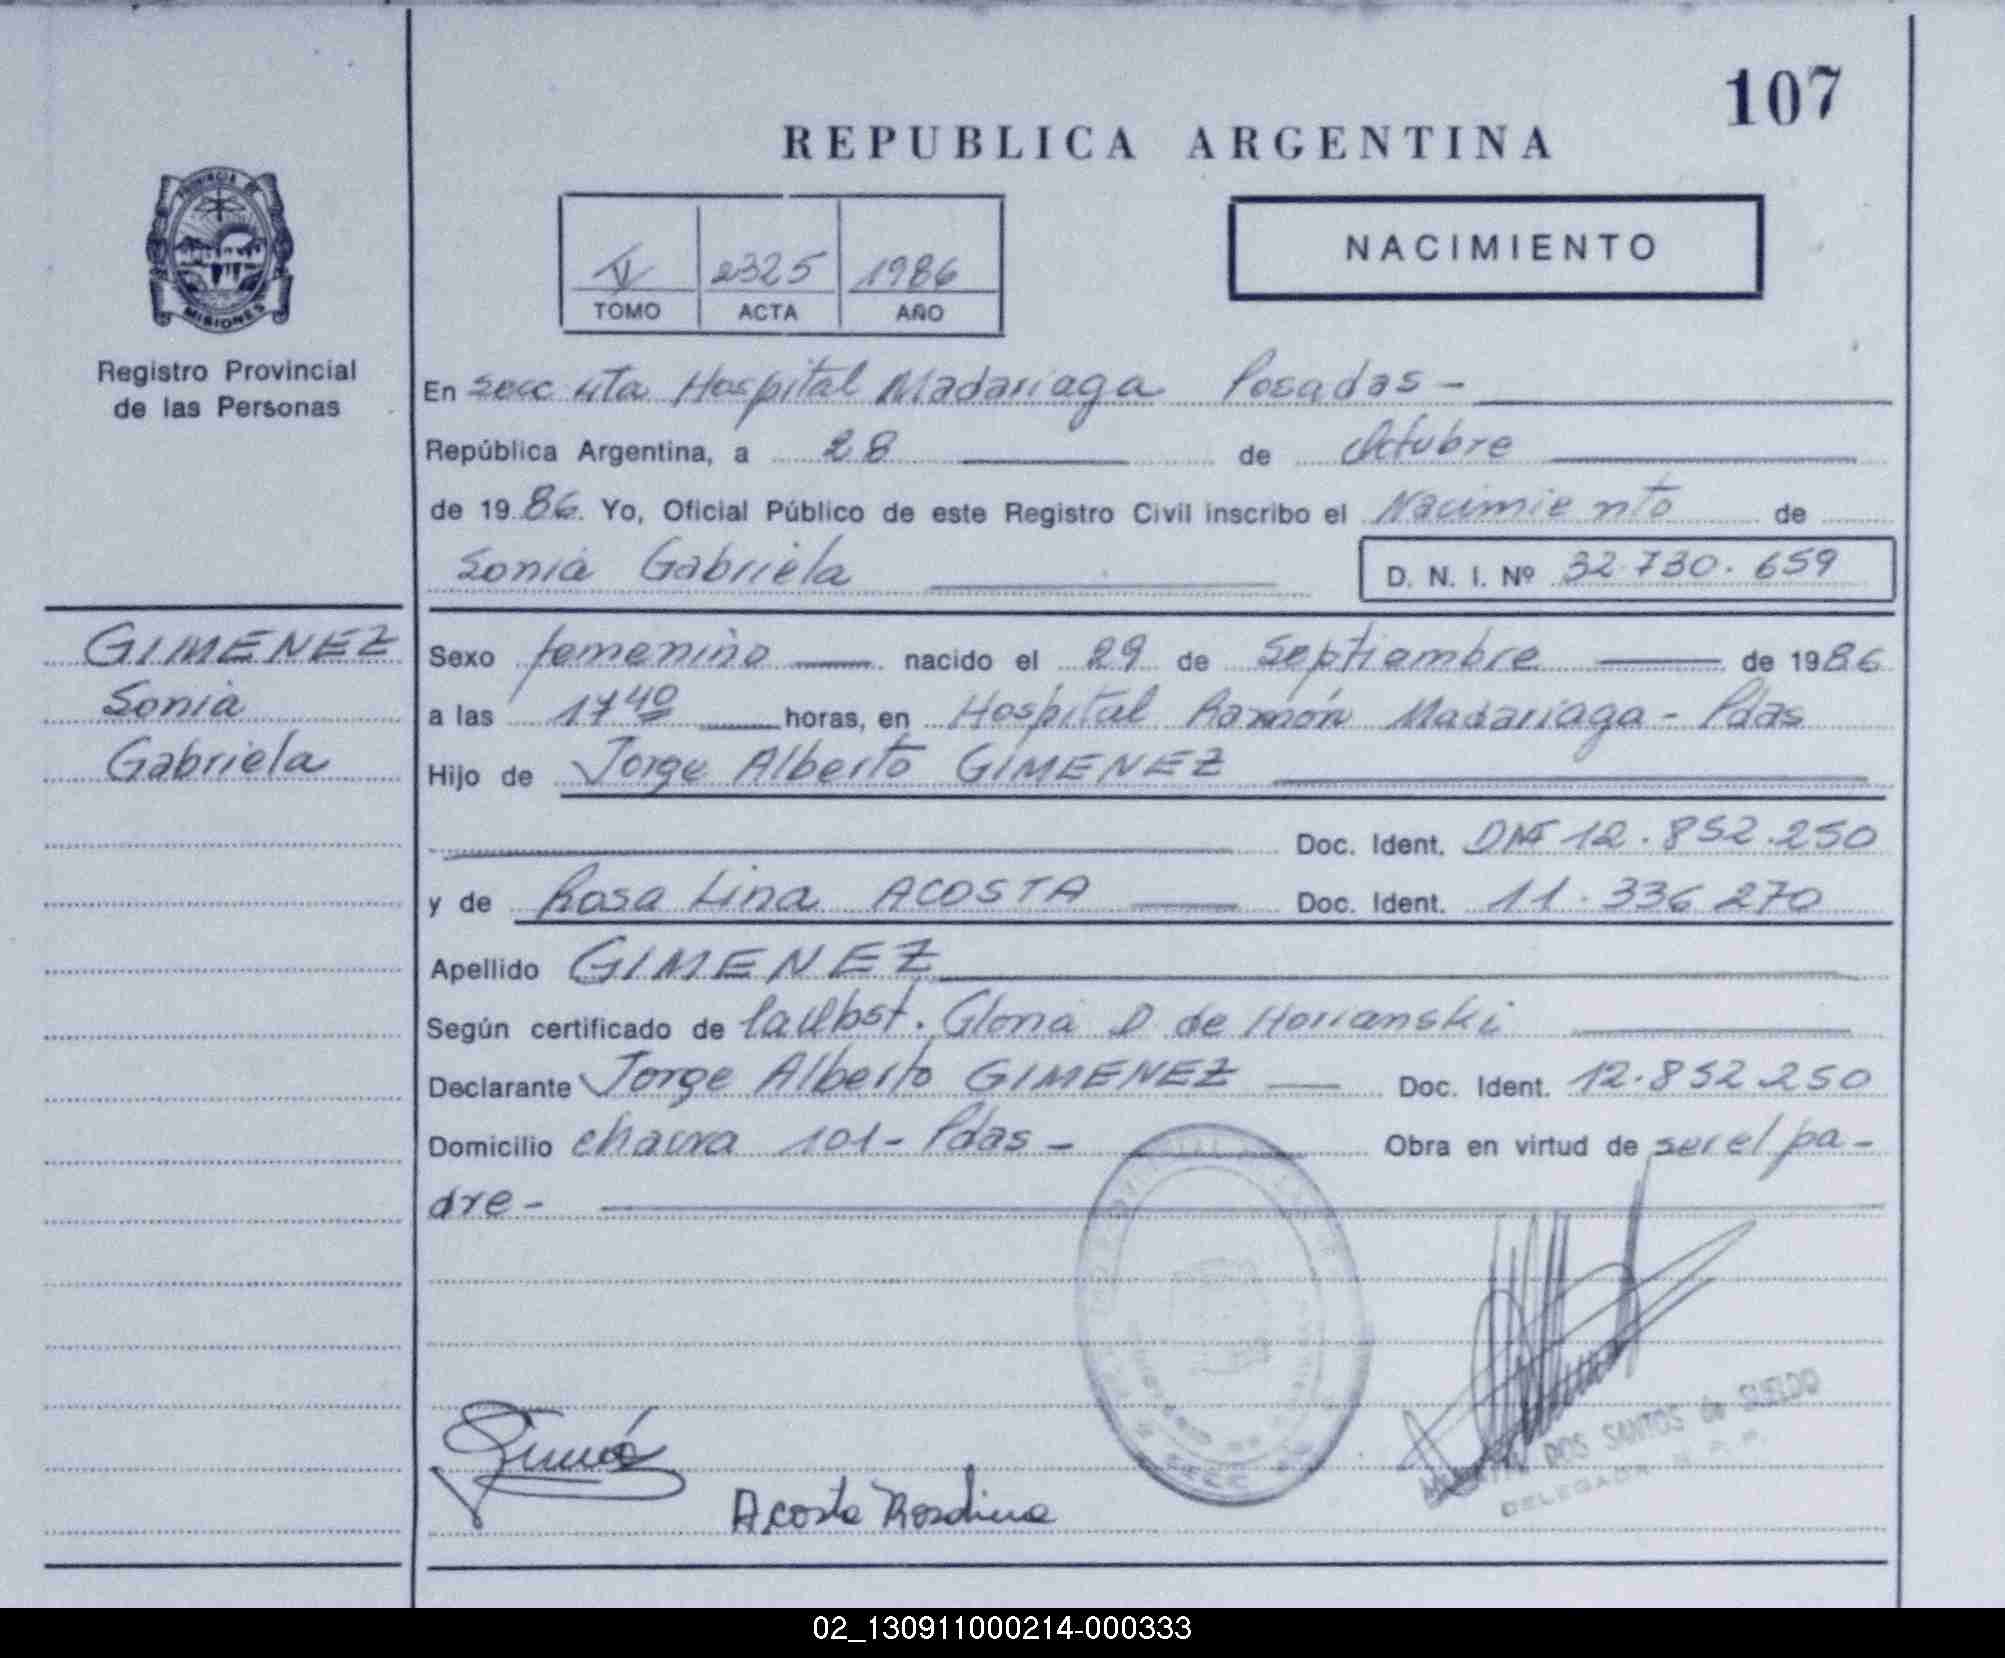 107
REPUBLICA ARGENTINA
PROVINCIA DE
MISIONES
Registro Provincial
de las Personas
V 2325 1986
TOMO ACTA AÑO
NACIMIENTO
En Secc 4ta Hospital Madariaga Posadas -
República Argentina, a 28 de Octubre
de 1986. Yo, Oficial Público de este Registro Civil inscribo el Nacimiento de
Sonia Gabriela D. N. I. Nº 32.730.659
GIMENEZ
Sonia
Gabriela
Sexo femenino nacido el 29 de Septiembre de 1986
a las 17 40 horas, en Hospital Ramón Madariaga - Pdas
Hijo de Jorge Alberto GIMENEZ
Doc. Ident. DNI 12.852.250
y de Rosa Lina ACOSTA Doc. Ident. 11.336 270
Apellido GIMENEZ
Según certificado de la Obst. Gloria D de Horianski
Declarante Jorge Alberto GIMENEZ Doc. Ident. 12.852.250
Domicilio chacra 101 - Pdas - Obra en virtud de ser el pa-
dre -
DOS SANTOS de SUELDO
DELEGADA R. P. P.
Acosta Rosalina
02_130911000214-000333